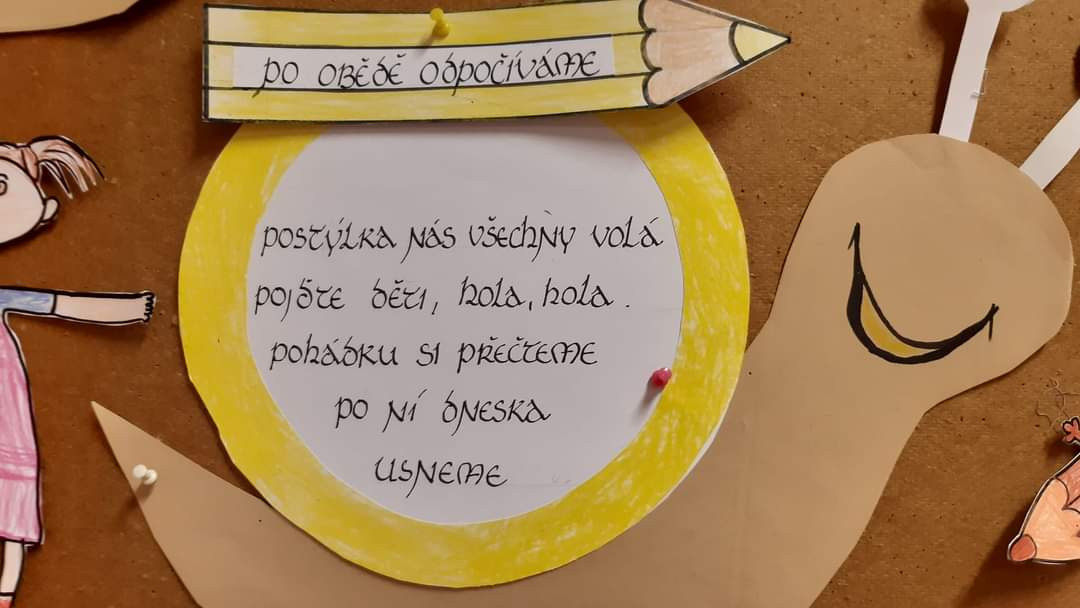 po obědě odpočíváme
postýlka nás všechny volá
pojďte děti, hola, hola.
pohádku si přečteme
po ní dneska
usneme